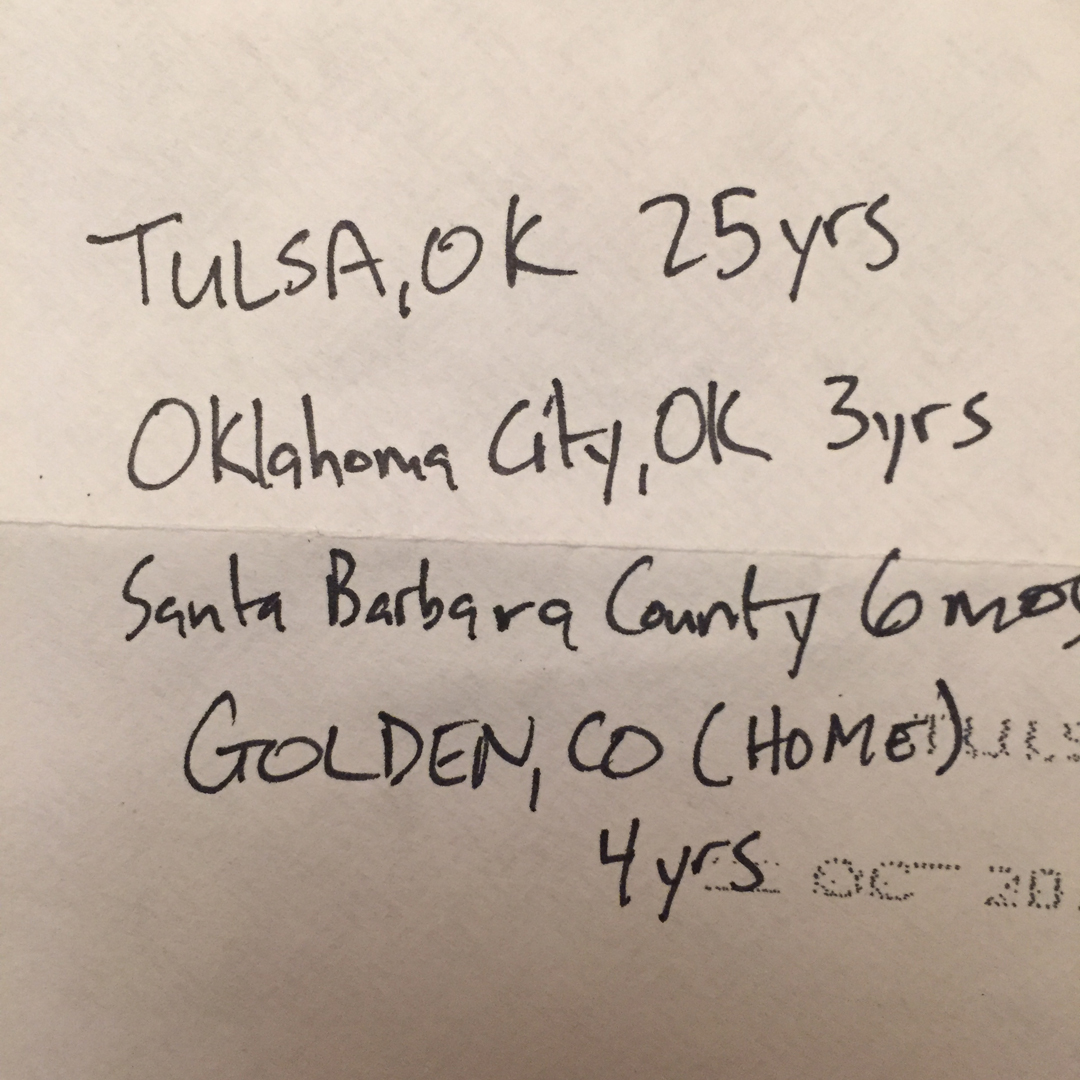 TULSA, OK 25yrs
Oklahoma City, OK 3yrs
Santa Barbara County 6 mos
GOLDEN, CO (HOME)
4 yrs
OCT 20